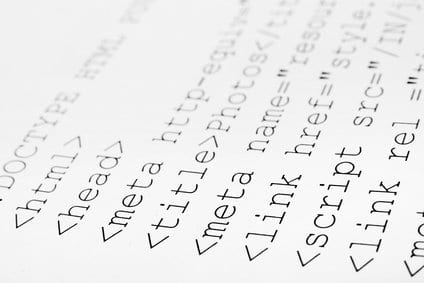 DOCTYPE HTML PU
<html>
<head>
<meta http-equiv=
<title>Photos</tit
<meta name="resour
<link href="style.
<script src="/IN/j
<link rel ="ti
<met